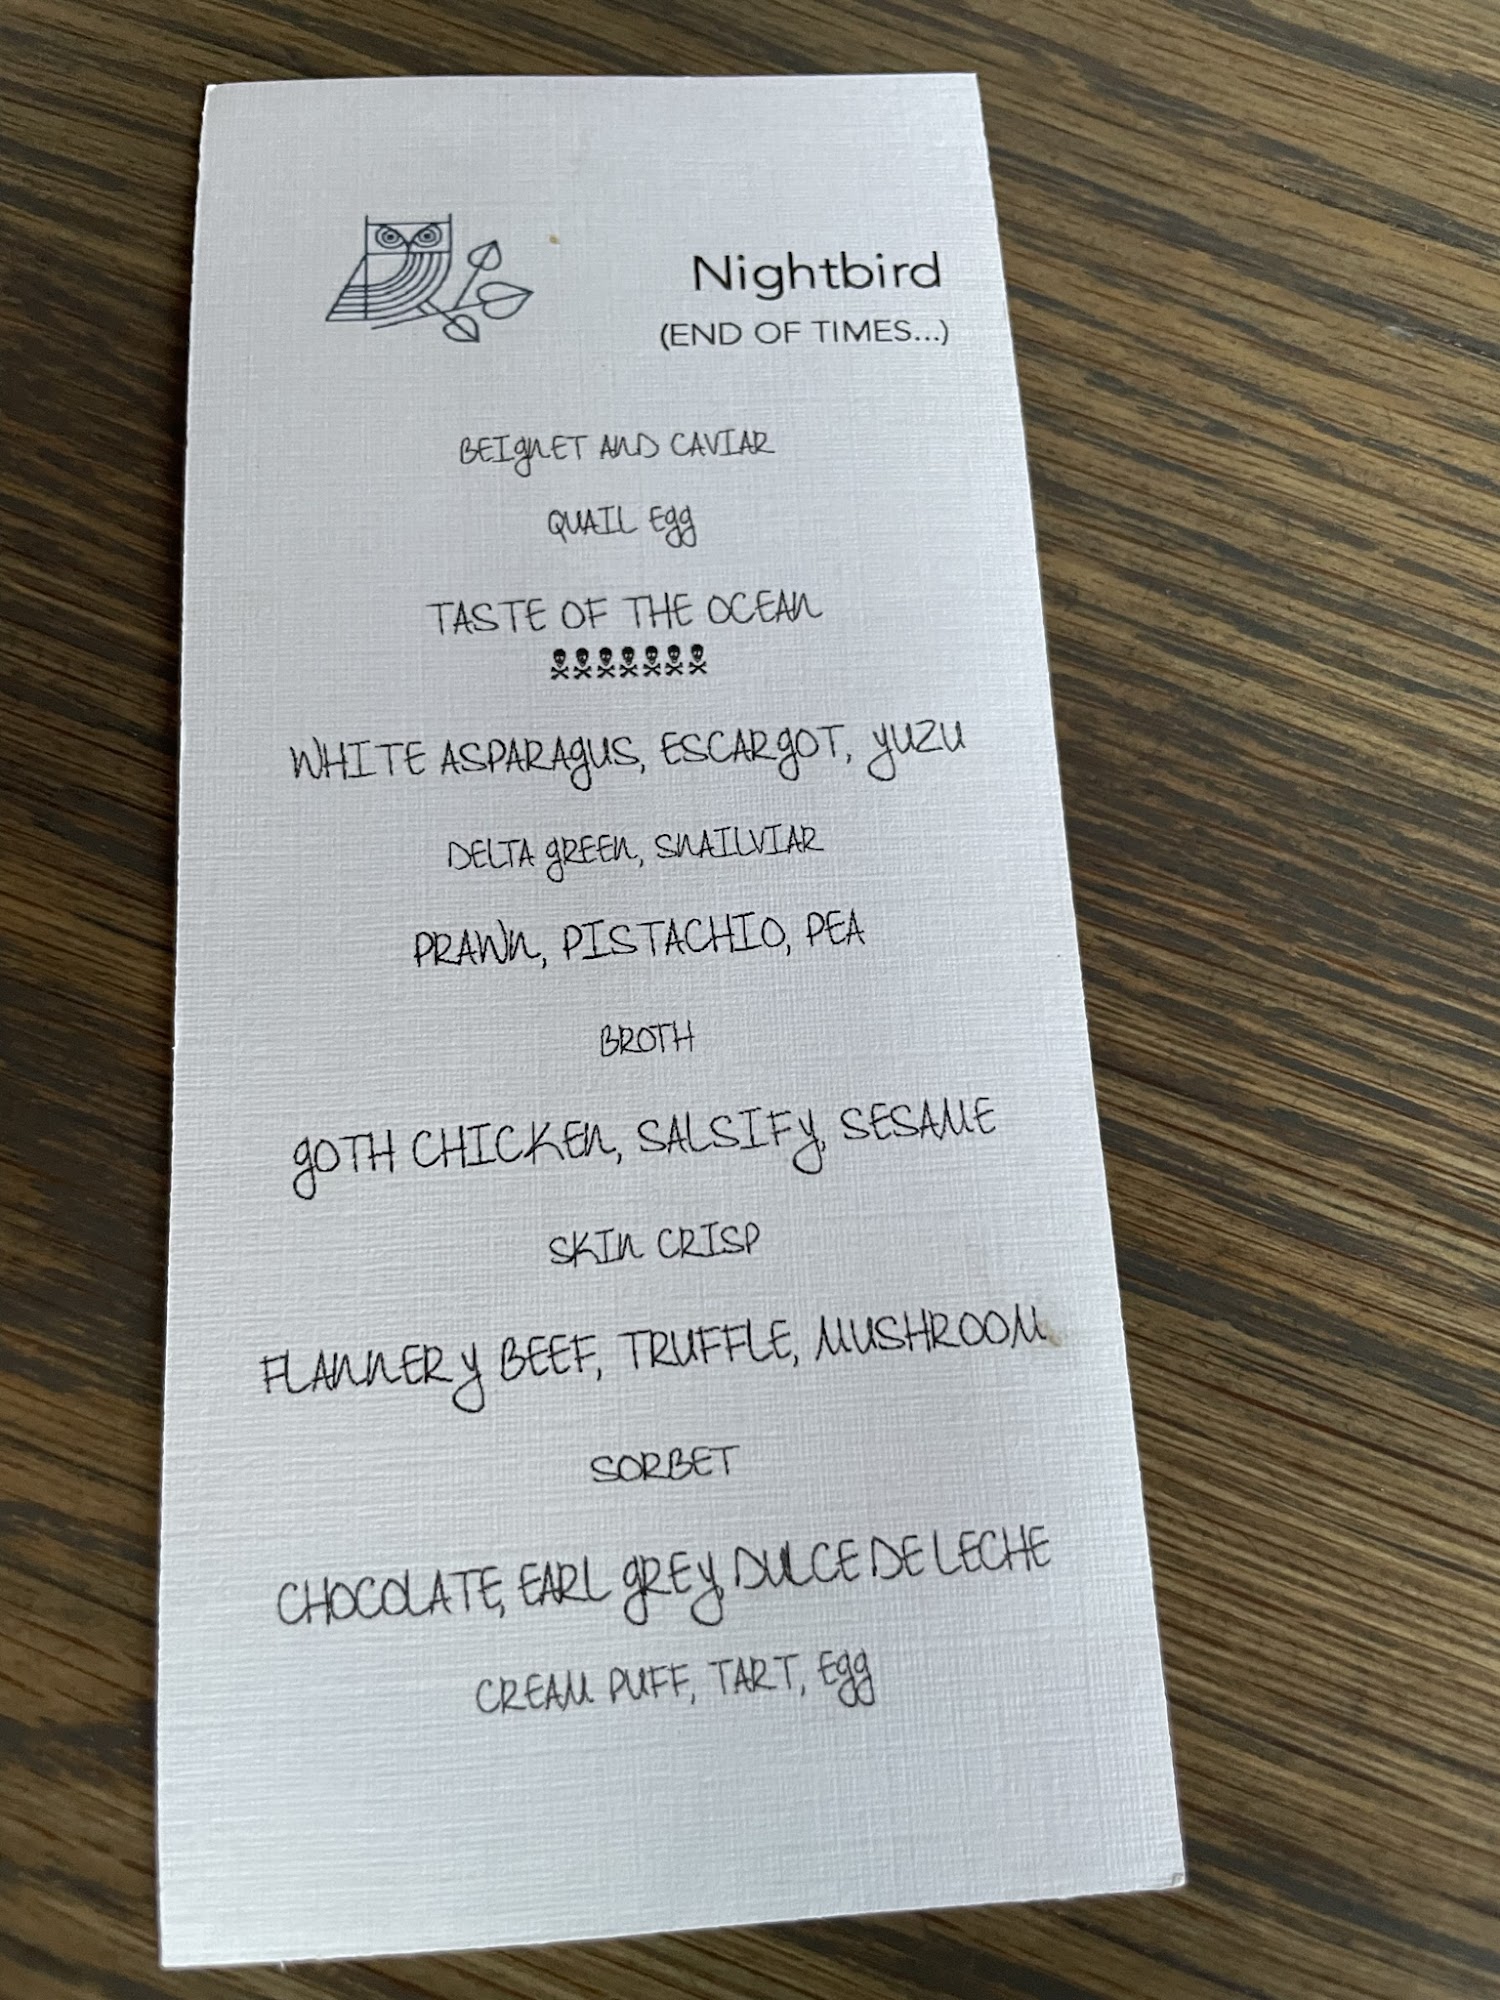 Nightbird
(END OF TIMES...)
BEIgnET AND CAVIAR
QUAIL Egg
TASTE OF THE OCEAN
☠☠☠☠☠☠☠
WHITE ASPARAgUS, ESCARgOT, yUZU
DELTA gREEn, SnAILVIAR
PRAWn, PISTACHIO, PEA
BROTH
gOTH CHICKEn, SALSIFy, SESAME
SKIn CRISP
FLAnnERy BEEF, TRUFFLE, MUSHROOM
SORBET
CHOCOLATE, EARL gREy, DULCE DE LECHE
CREAM PUFF, TART, Egg